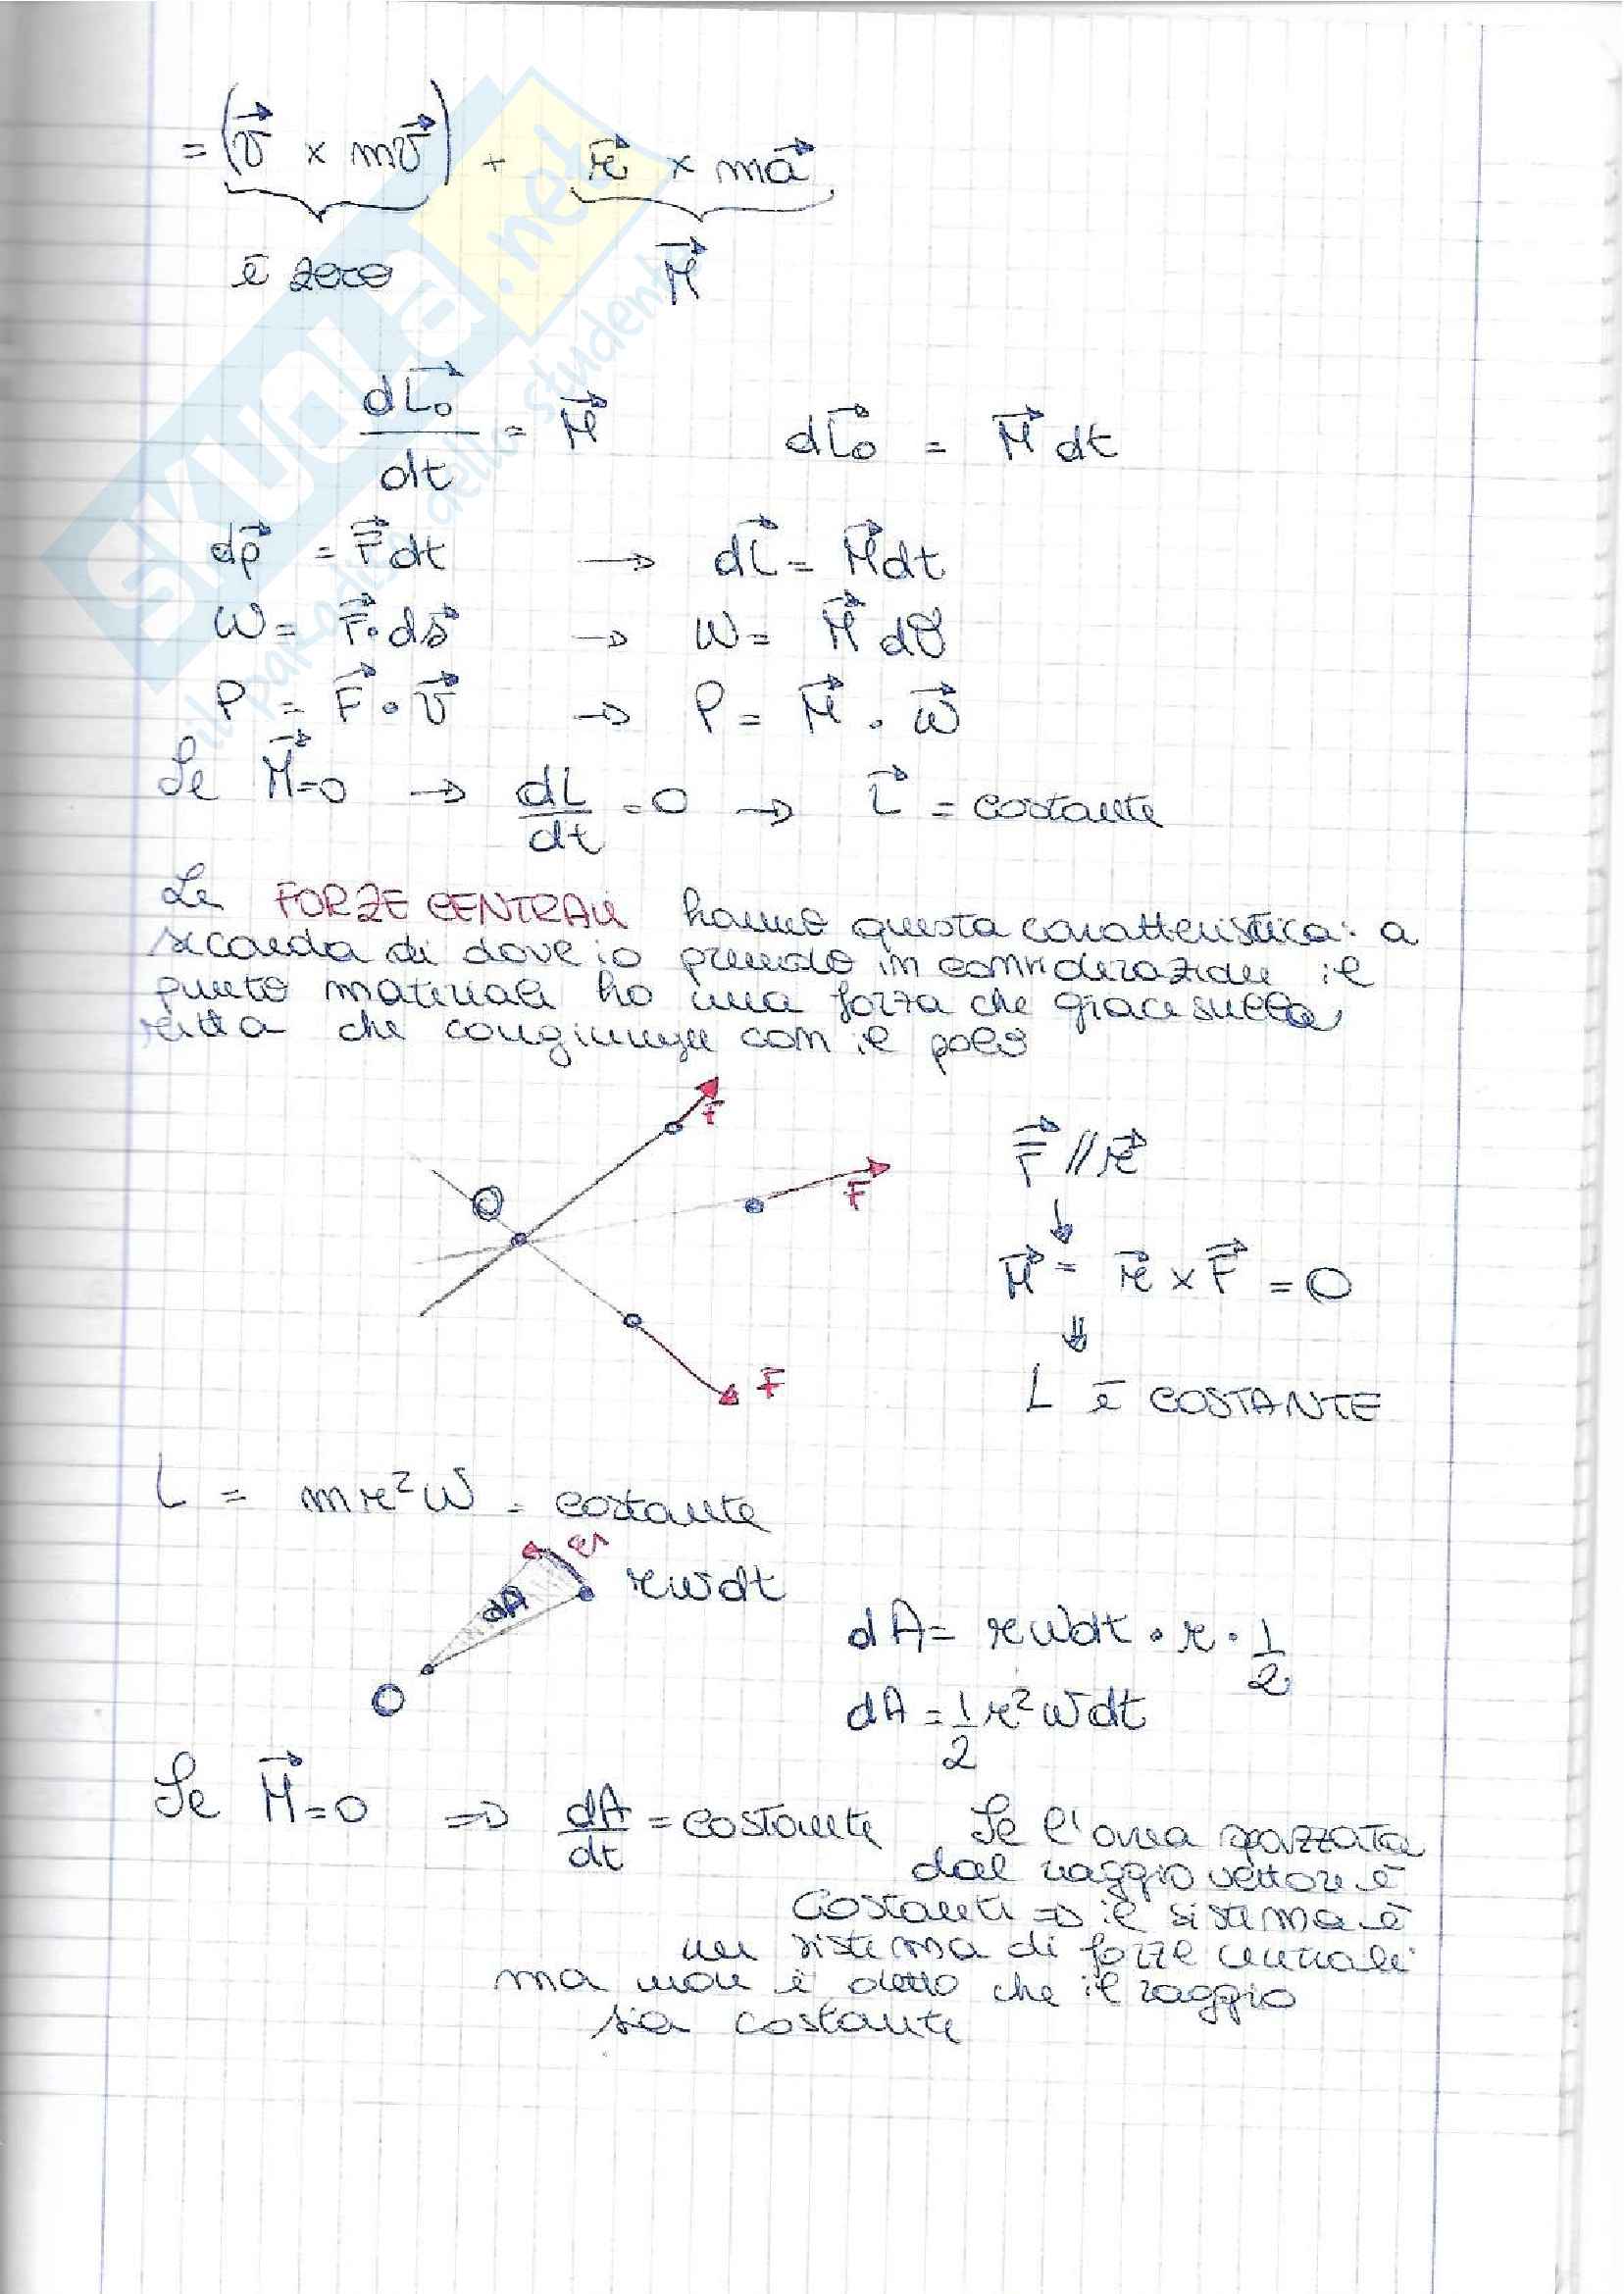 = (v⃗ × mv⃗) + r⃗ × ma⃗
è zero M⃗
dL⃗₀/dt = M⃗ dL⃗₀ = M⃗ dt
dp⃗ = F⃗dt → dL⃗ = M⃗dt
W = F⃗·ds⃗ → W = M⃗ dϑ
P = F⃗ · v⃗ → P = M⃗ · ω⃗
Se M⃗=0 → dL/dt = 0 → L⃗ = costante
Le FORZE CENTRALI hanno questa caratteristica: a
seconda di dove io prendo in considerazione il
punto materiale ho una forza che giace sulla
retta che congiunge con il polo
F
F⃗ // r⃗
F
O
↓
M⃗ = r⃗ × F⃗ = 0
⇓
F
L è COSTANTE
L = mr²ω = costante
dA
rωdt
dA = rωdt · r · 1/2
O
dA = 1/2 r²ωdt
Se M⃗=0 ⇒ dA/dt = costante Se l'area spazzata
dal raggio vettore è
costante ⇒ il sistema è
un sistema di forze centrali
ma non è detto che il raggio
sia costante
SKUOLA.net
il paradiso dello studente